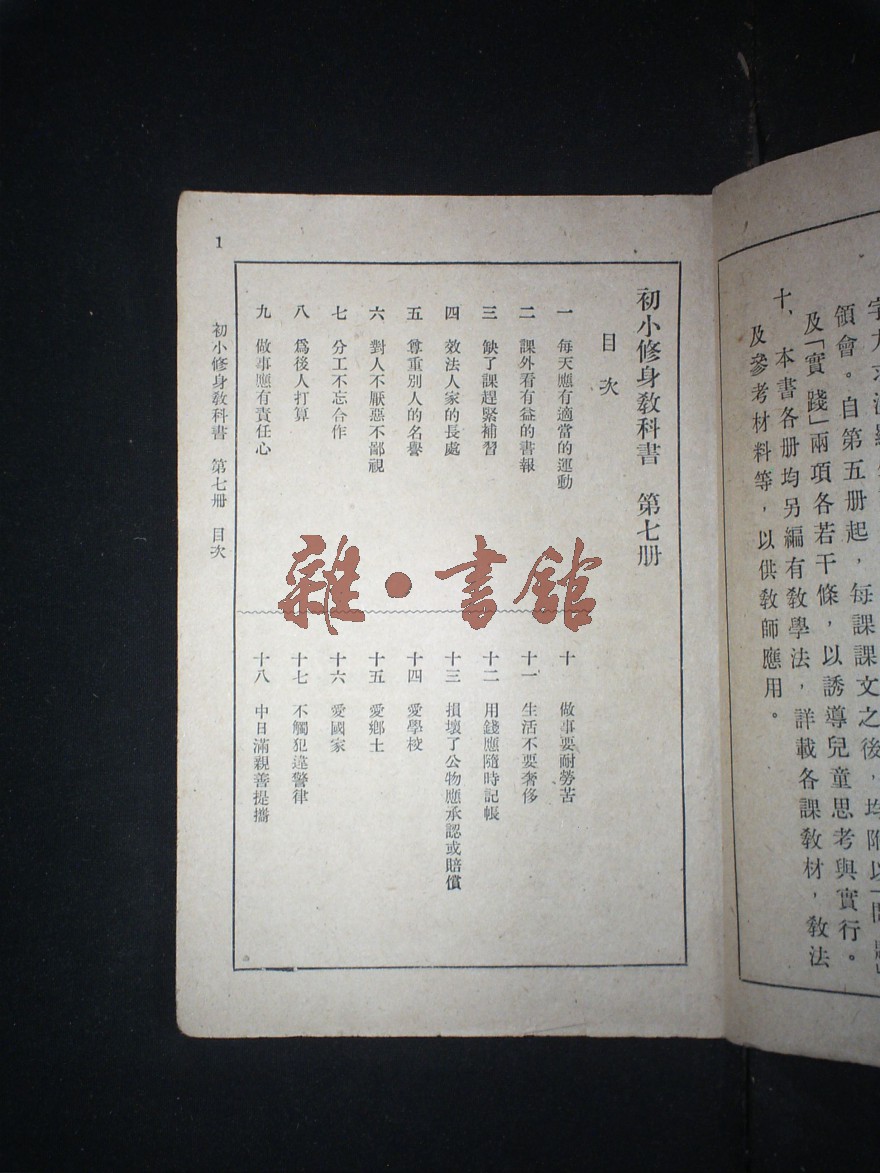 字力求淺
領會。自第五册起，每課課文之後，均附以「問題」
及「實踐」兩項各若干條，以誘導兒童思考與實行。
十、本書各册均另編有敎學法，詳載各課敎材，敎法
及參考材料等，以供敎師應用。
初小修身敎科書　第七册
目次
一　每天應有適當的運動
二　課外看有益的書報
三　缺了課趕緊補習
四　效法人家的長處
五　尊重別人的名譽
六　對人不厭惡不鄙視
七　分工不忘合作
八　爲後人打算
九　做事應有責任心
十　做事要耐勞苦
十一　生活不要奢侈
十二　用錢應隨時記帳
十三　損壞了公物應承認或賠償
十四　愛學校
十五　愛鄉土
十六　愛國家
十七　不觸犯違警律
十八　中日滿親善提攜
初小修身敎科書　第七册　目次
1
雜·書館